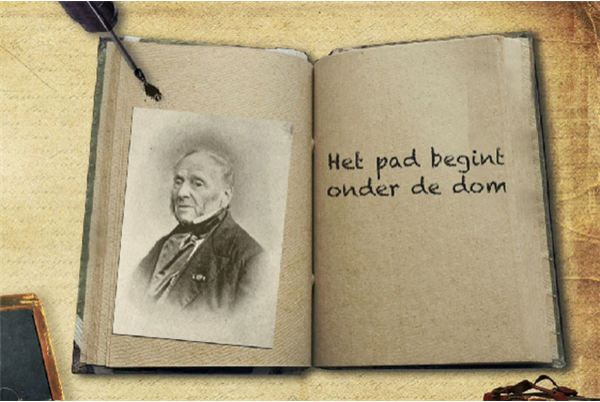 Het pad begint
onder de dom